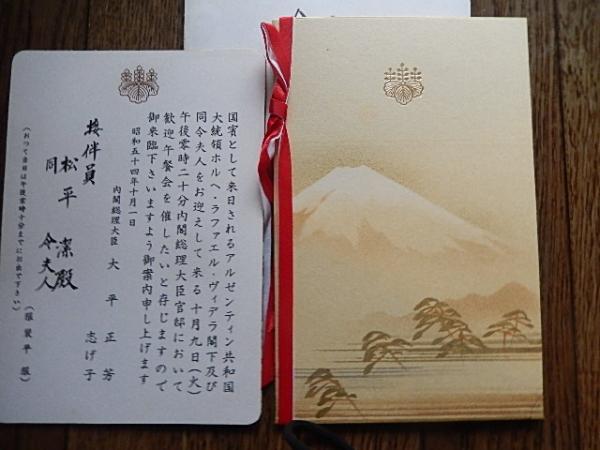 国賓として来日されるアルゼンティン共和国
大統領ホルヘ・ラファエル・ヴィデラ閣下及び
同令夫人をお迎えして来る十月九日（火）
午後零時二十分内閣総理大臣官邸において
歓迎午餐会を催したいと存じますので
御来臨下さいますよう御案内申し上げます
昭和五十四年十月一日
内閣総理大臣 大平正芳
志げ子
接伴員 松平潔殿
同 令夫人
（おって当日は午後零時十分までにお出で下さい）
（服装平服）